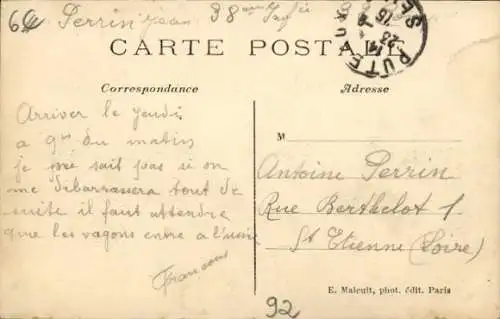 64 Perrin Jean 38
CARTE POSTALE
PUTEAUX
Correspondance
Adresse
Arriver le jeudi
a 9h du matin
je né sait pas si on
me dibarrassera tout de
suite il faut attendre
que les vagons entre a l'usine
M
Antoine Perrin
Rue Berthelot 1
St Etienne (Loire)
E. Malcuit, phot. édit. Paris
92